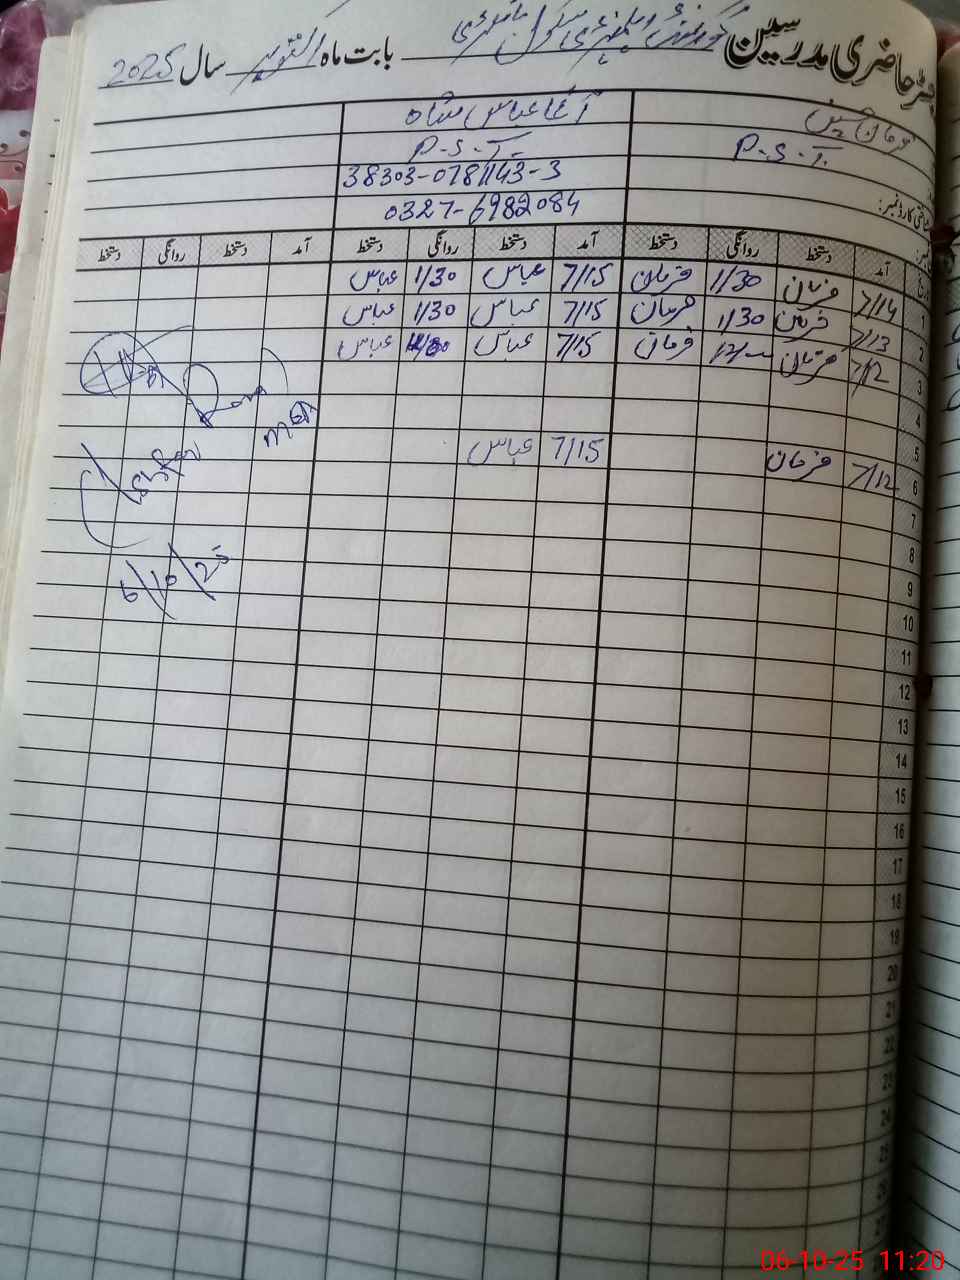 رجسٹر حاضری مدرسین گورنمنٹ پرائمری سکول بابت ماہ اکتوبر سال 2025
فرمان حسین آغا عباس شاہ
P.S.T. P.S.T.
38303-0781143-3
شناختی کارڈ نمبر: 0327-6982084
آمد دستخط روانگی دستخط آمد دستخط روانگی دستخط آمد دستخط روانگی دستخط
1 7/14 فرمان 1/30 فرمان 7/15 عباس 1/30 عباس
2 7/13 فرمان 1/30 فرمان 7/15 عباس 1/30 عباس
3 7/12 فرمان 12/- فرمان 7/15 عباس عباس
4
5
6 7/12 فرمان 7/15 عباس
7
8
9
10
11
12
13
14
15
16
17
18
19
20
21
22
23
24
25
26
27
6/10/25
06-10-25 11:20